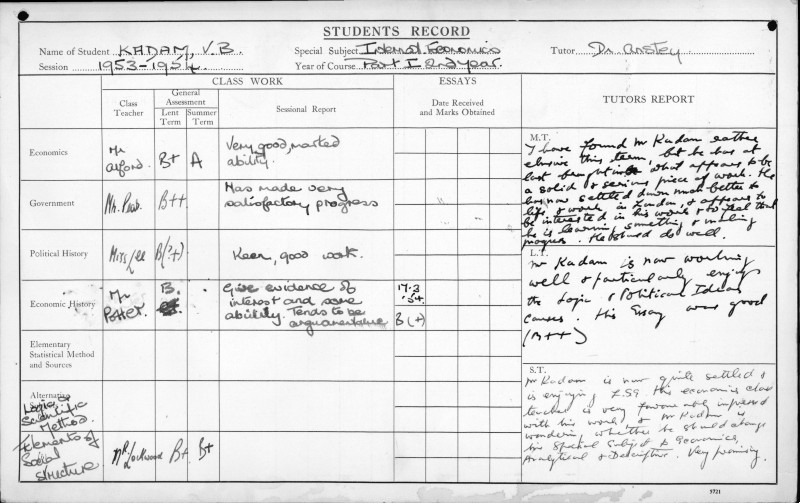 STUDENTS RECORD
Name of Student KADAM, V.B. Special Subject Internat. Economics Tutor Dr Anstey
Session 1953-1954 Year of Course Part I 2nd year.
CLASS WORK ESSAYS TUTORS REPORT
Class Teacher General Assessment Sessional Report Date Received and Marks Obtained
Lent Term Summer Term
Economics Mr Alford. B+ A Very good, marked ability.
Government Mr. B++ Has made very satisfactory progress
Political History Miss Lee B(?+) Keen, good work.
Economic History Mr Potter. B. Give evidence of interest and some ability. Tends to be argumentative 17.3.54. B(+)
Elementary Statistical Method and Sources
Alternative
Logic & Scientific Method.
Elements of Social Structure Mr Lockwood B+ B+
M.T.
I have found Mr Kadam rather
elusive this term, but he has at
last brought in what appears to be
a solid & serious piece of work. He
has now settled down much better to
life & work in London, & appears to
be interested in his work & to feel that
he is learning something & making
progress. He should do well.
L.T.
Mr Kadam is now working
well & particularly enjoys
the Logic & Political Ideas
Courses. His Essay was good
(B++)
S.T.
Mr Kadam is now quite settled &
is enjoying LSE. His economics class
teacher is very favourably impressed
with his work & Mr Kadam is
wondering whether he should change
his Special Subject to Economics,
Analytical & Descriptive. Very promising.
5721